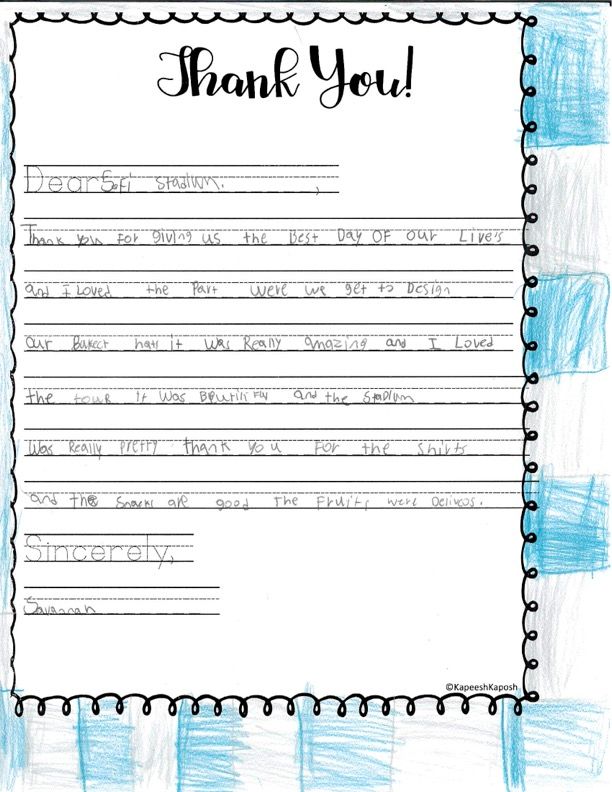 Thank You!
Dear Sofi Stadium. ,
Thank you For giving us the Best Day OF our Live's
and I Loved the Part were we get to Design
our Bukect hats it was Really amazing and I Loved
the tour it was the Stadium
was Really Pretty thank you For the shirts
and the Snacks are good The Fruits were Delicos.
Sincerely,
Savannah
©KapeeshKaposh